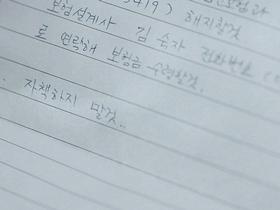 5419) 해지할것
보험설계사 김순자 전화번호
로 연락해 보험금 수령할것.
자책하지 말것..